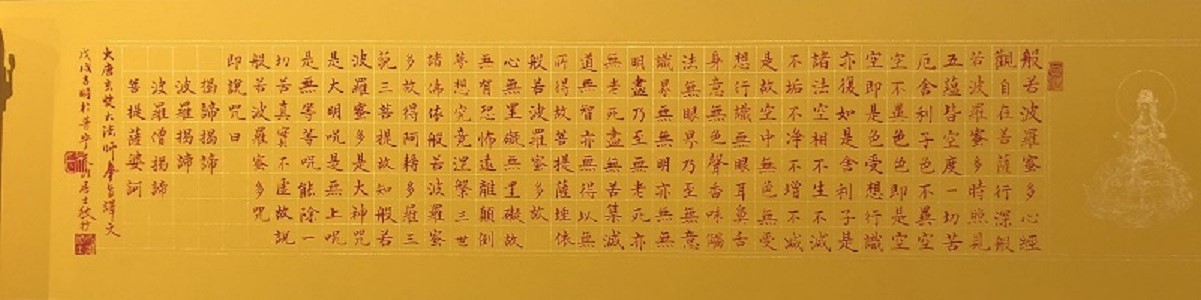 般若波羅蜜多心經
觀自在菩薩行深般
若波羅蜜多時照見
五蘊皆空度一切苦
厄舍利子色不異空
空不異色色即是空
空即是色受想行識
亦復如是舍利子是
諸法空相不生不滅
不垢不净不增不減
是故空中無色無受
想行識無眼耳鼻舌
身意無色聲香味觸
法無眼界乃至無意
識界無無明亦無無
明盡乃至無老死亦
無老死盡無苦集滅
道無智亦無得以無
所得故菩提薩埵依
般若波羅蜜多故
心無罣礙無罣礙故
無有恐怖遠離顛倒
夢想究竟涅槃三世
諸佛依般若波羅蜜
多故得阿耨多羅三
藐三菩提故知般若
波羅蜜多是大神咒
是大明咒是無上咒
是無等等咒能除一
切苦真實不虛故說
般若波羅蜜多咒
即說咒曰
揭諦揭諦
波羅揭諦
波羅僧揭諦
菩提薩婆訶
大唐玄奘大法師奉旨譯文
戊戌吉時於居士敬抄